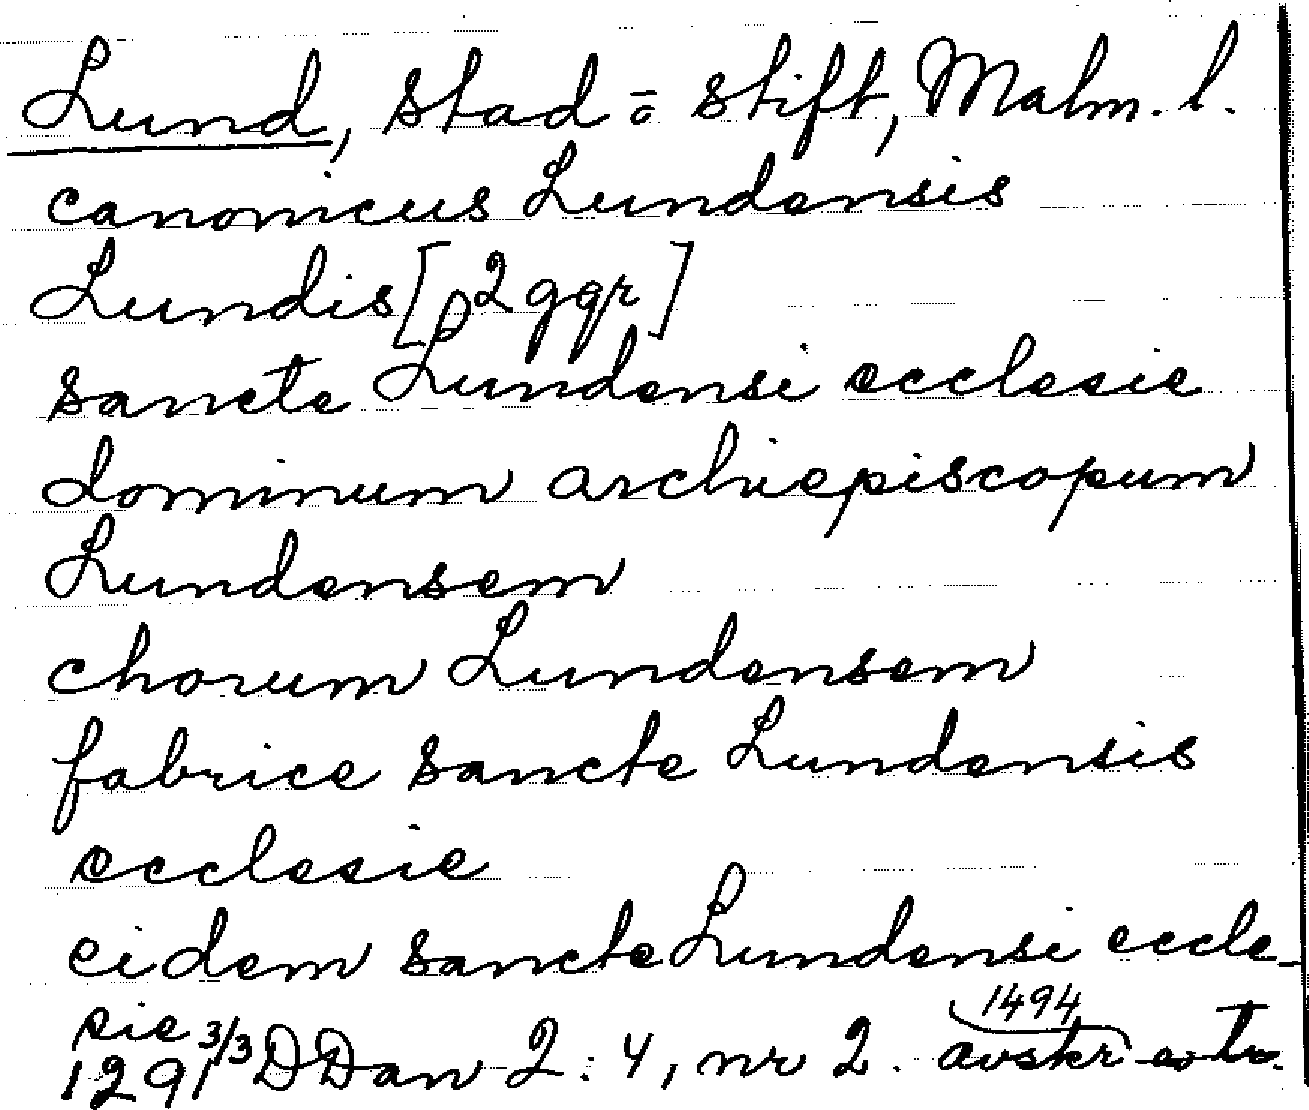 Lund, stad o stift, Malm. l.
canonicus Lundensis
Lundis [2 ggr]
sancte Lundensi ecclesie
dominum archiepiscopum
Lundensem
chorum Lundensem
fabrice sancte Lundensis
ecclesie
eidem sancte Lundensi eccle-
sie 3/3
1494
1291 DDan 2:4, nr 2. avskr